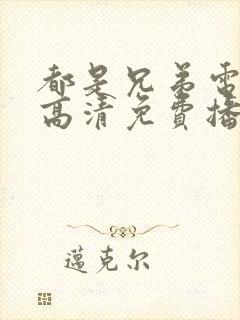 都是兄弟電
高清免費播
邁克尔